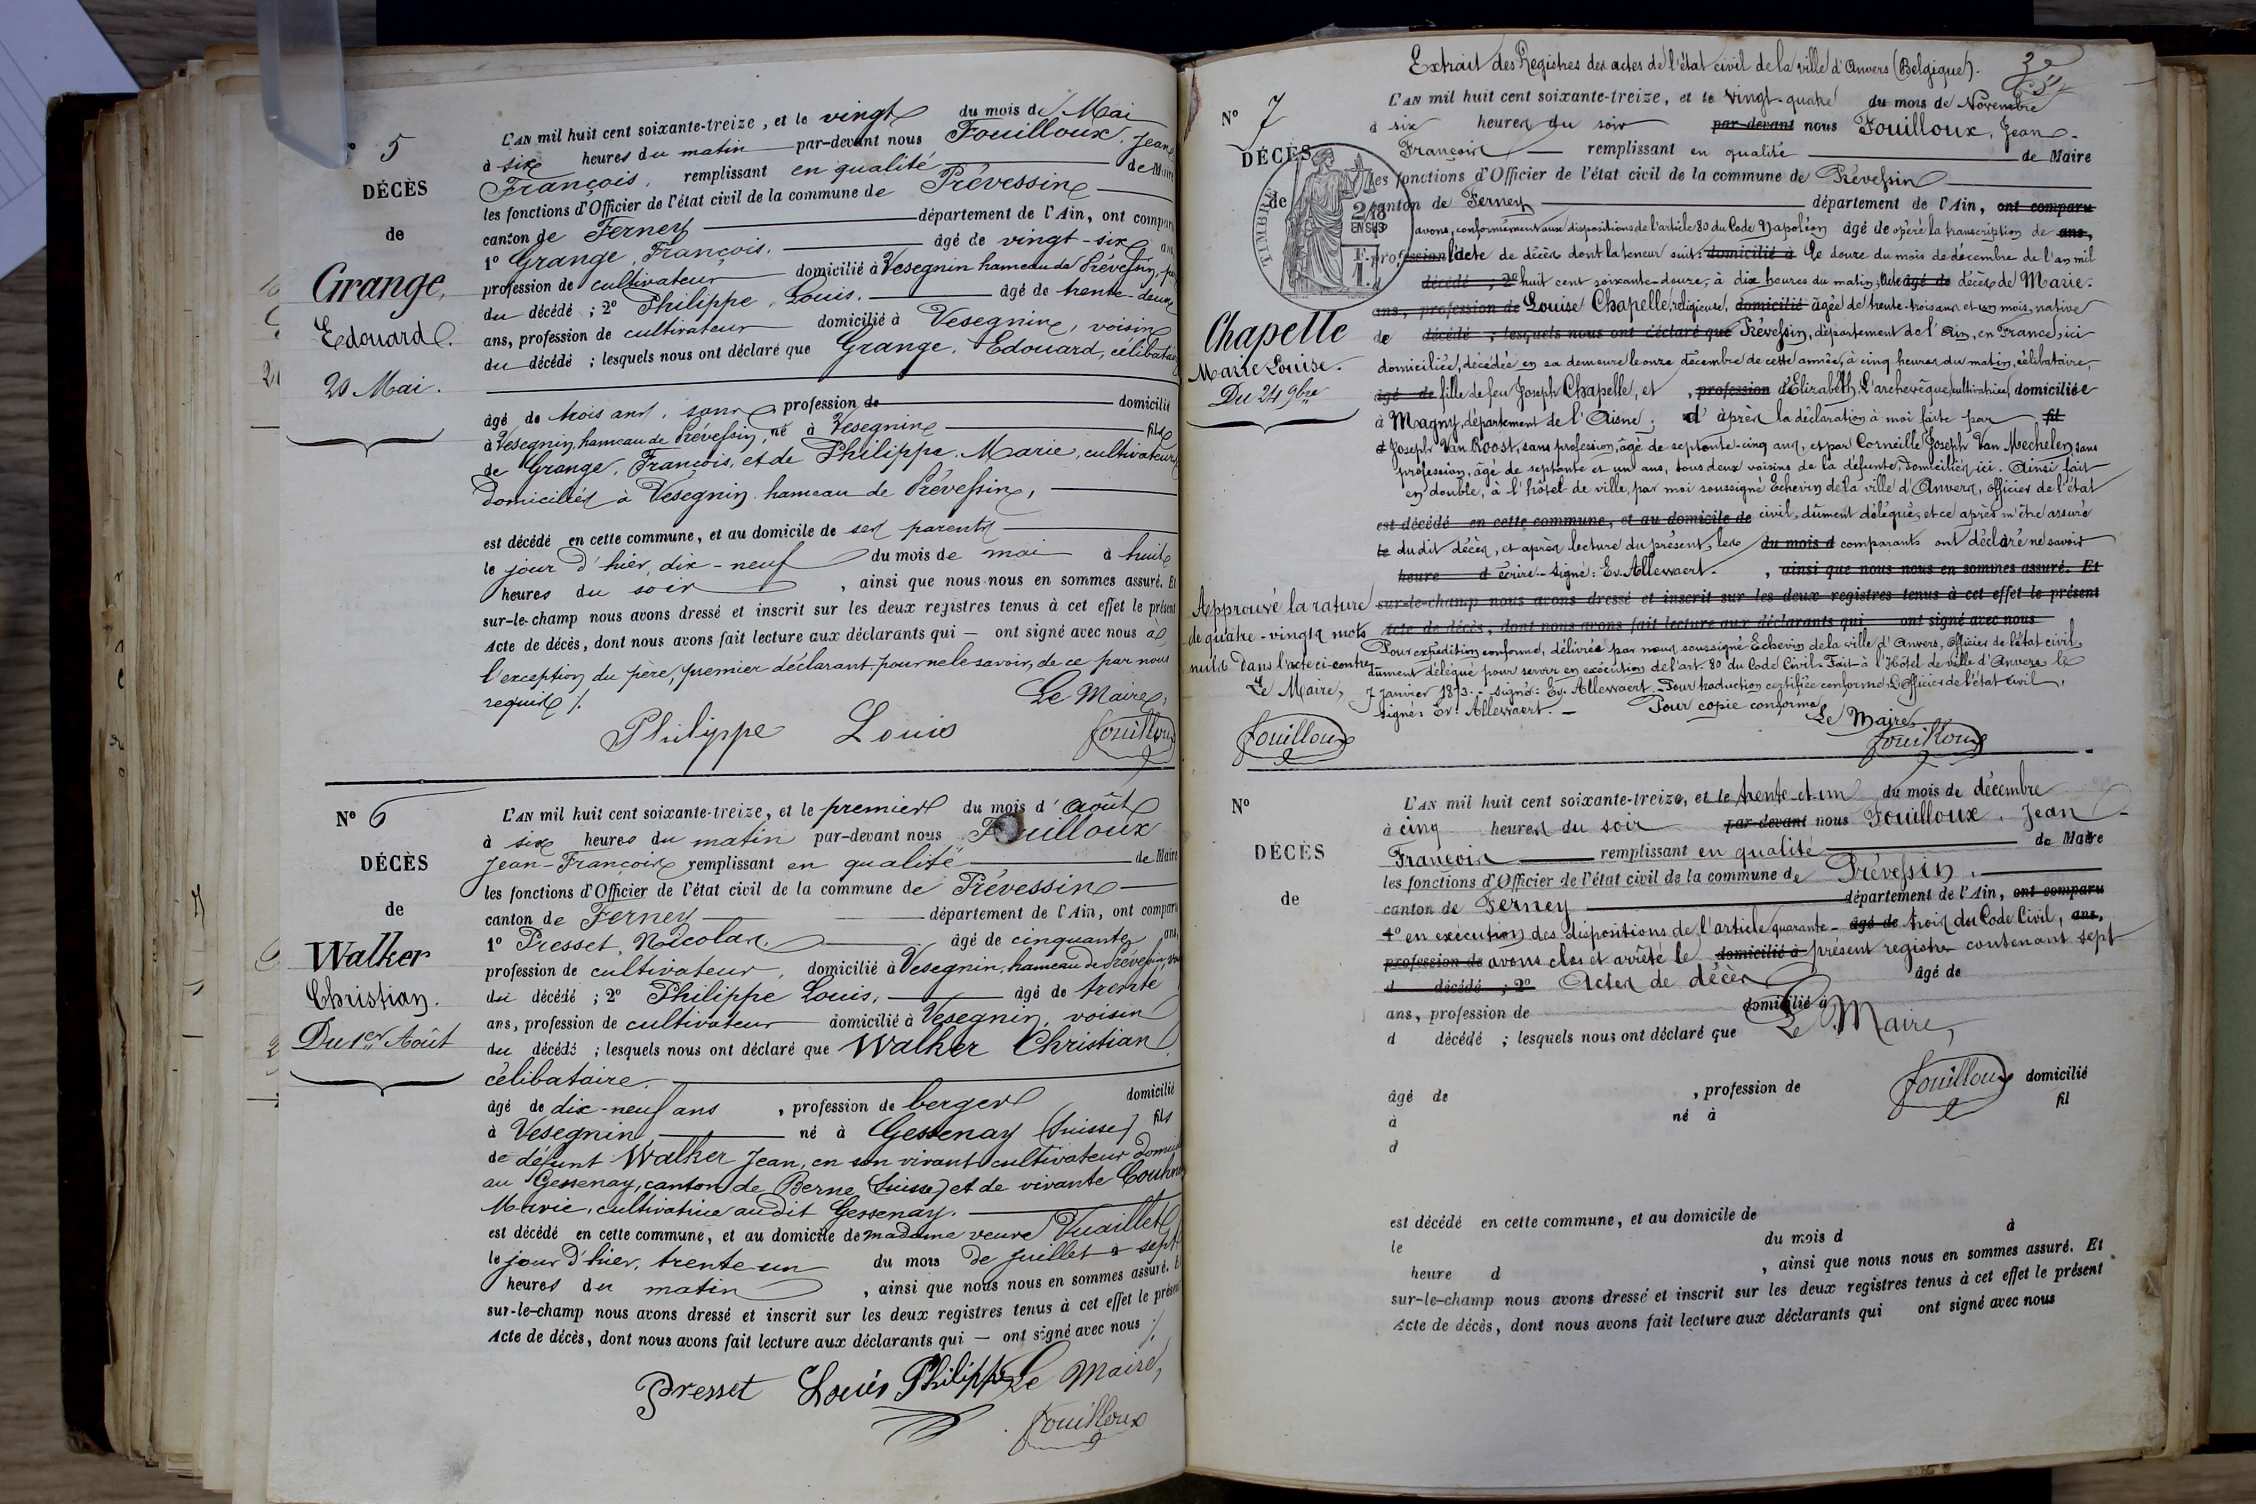 No 5
DÉCÈS
de
Grange,
Edouard.
20 Mai.
L'AN mil huit cent soixante-treize, et le vingt du mois de Mai
à six heures du matin par-devant nous Fouilloux, Jean
François, remplissant en qualité de Maire
les fonctions d'Officier de l'état civil de la commune de Prévessin
canton de Ferney département de l'Ain, ont comparu
1° Grange, François, âgé de vingt-six ans
profession de cultivateur domicilié à Vesegnin hameau de Prévessin,
du décédé ; 2° Philippe, Louis, âgé de trente-deux
ans, profession de cultivateur domicilié à Vesegnin, voisin
du décédé ; lesquels nous ont déclaré que Grange, Edouard, célibataire
âgé de trois ans, sans profession de domicilié
à Vesegnin, hameau de Prévessin, né à Vesegnin fils
de Grange, François, et de Philippe, Marie, cultivateurs
domiciliés à Vesegnin hameau de Prévessin,
est décédé en cette commune, et au domicile de ses parents
le jour d'hier, dix-neuf du mois de mai à huit
heures du soir, ainsi que nous nous en sommes assuré. Et
sur-le-champ nous avons dressé et inscrit sur les deux registres tenus à cet effet le présent
Acte de décès, dont nous avons fait lecture aux déclarants qui — ont signé avec nous à
l'exception du père, premier déclarant, pour ne le savoir, de ce par nous
requis /.
Le Maire,
Philippe Louis Fouilloux
No 6
DÉCÈS
de
Walker
Christian.
Du 1er Août
L'AN mil huit cent soixante-treize, et le premier du mois d'Août
à six heures du matin par-devant nous Fouilloux
Jean-François remplissant en qualité de Maire
les fonctions d'Officier de l'état civil de la commune de Prévessin
canton de Ferney département de l'Ain, ont comparu
1° Presset, Nicolas, âgé de cinquante ans,
profession de cultivateur, domicilié à Vesegnin, hameau de Prévessin,
du décédé ; 2° Philippe Louis, âgé de trente
ans, profession de cultivateur domicilié à Vesegnin, voisin
du décédé ; lesquels nous ont déclaré que Walker Christian
célibataire.
âgé de dix-neuf ans, profession de berger domicilié
à Vesegnin, né à Gessenay (Suisse) fils
de défunt Walker Jean, en son vivant cultivateur
au Gessenay, canton de Berne (Suisse) et de vivante
Marie, cultivatrice audit Gessenay.
est décédé en cette commune, et au domicile de madame veuve Vuaillet
le jour d'hier, trente-un du mois de juillet à sept
heures du matin, ainsi que nous nous en sommes assuré. Et
sur-le-champ nous avons dressé et inscrit sur les deux registres tenus à cet effet le présent
Acte de décès, dont nous avons fait lecture aux déclarants qui — ont signé avec nous /.
Presset Louis Philippe Le Maire,
Fouilloux
Extrait des Registres des actes de l'état civil de la ville d'Anvers (Belgique).
No 7
DÉCÈS
de
TIMBRE
2/10
EN SUS
Chapelle
Marie Louise.
Du 24 9bre
L'AN mil huit cent soixante-treize, et le vingt-quatre du mois de Novembre
à six heures du soir par-devant nous Fouilloux, Jean-
François remplissant en qualité de Maire
les fonctions d'Officier de l'état civil de la commune de Prévessin
canton de Ferney département de l'Ain, ont comparu
avons, conformément aux dispositions de l'article 80 du Code Napoléon âgé de opéré la transcription de ans,
profession l'acte de décès dont la teneur suit: domicilié à Le douze du mois de décembre de l'an mil
décédé ; 2° huit cent soixante-douze, à dix heures du matin, Acte âgé de décès de Marie-
ans, profession de Louise Chapelle, religieuse, domicilié âgée de trente-trois ans et un mois, native
de décédé ; lesquels nous ont déclaré que Prévessin, département de l'Ain, en France, ici
domiciliée, décédée en sa demeure le onze décembre de cette année, à cinq heures du matin, célibataire,
âgé de fille de feu Joseph Chapelle, et, profession d'Elizabeth, L'archevêque, cultivatrice, domiciliée
à Magny, département de l'Aisne; d'après la déclaration à moi faite par fil
d Joseph Van Roost, sans profession, âgé de septante-cinq ans, et par Corneille Joseph Van Mechelen, sans
profession, âgé de septante et un ans, tous deux voisins de la défunte, domiciliés ici. Ainsi fait
en double, à l'hôtel de ville, par moi soussigné Echevin de la ville d'Anvers, officier de l'état
est décédé en cette commune, et au domicile de civil, dûment délégué, et ce après m'être assuré
le dudit décès, et après lecture du présent, les du mois d comparants ont déclaré ne savoir
heure d écrire. Signé: Ev. Allewaert. , ainsi que nous nous en sommes assuré. Et
sur-le-champ nous avons dressé et inscrit sur les deux registres tenus à cet effet le présent
Acte de décès, dont nous avons fait lecture aux déclarants qui ont signé avec nous
Pour expédition conforme, délivrée par nous soussigné Echevin de la ville d'Anvers, officier de l'état civil,
dûment délégué pour servir en exécution de l'art. 80 du Code Civil. Fait à l'Hôtel de ville d'Anvers le
7 Janvier 1873. - signé: Ev. Allewaert. - Pour traduction certifiée conforme, L'officier de l'état civil,
signé: Ev. Allewaert. — Pour copie conforme
Le Maire,
Fouilloux
Approuvé la rature
de quatre-vingts mots
nuls dans l'acte ci-contre
Le Maire,
Fouilloux
No
DÉCÈS
de
L'AN mil huit cent soixante-treize, et le trente-et-un du mois de décembre
à cinq heures du soir par-devant nous Fouilloux, Jean-
François remplissant en qualité de Maire
les fonctions d'Officier de l'état civil de la commune de Prévessin,
canton de Ferney département de l'Ain, ont comparu
1° en exécution des dispositions de l'article quarante-âgé de trois du Code Civil, ans,
profession de avons clos et arrêté le domicilié à présent registre contenant sept
d décédé ; 2° Actes de décès âgé de
ans, profession de domicilié à
d décédé ; lesquels nous ont déclaré que Le Maire,
Fouilloux
âgé de, profession de domicilié
à né à fil
d
est décédé en cette commune, et au domicile de
le du mois d à
heure d, ainsi que nous nous en sommes assuré. Et
sur-le-champ nous avons dressé et inscrit sur les deux registres tenus à cet effet le présent
Acte de décès, dont nous avons fait lecture aux déclarants qui ont signé avec nous